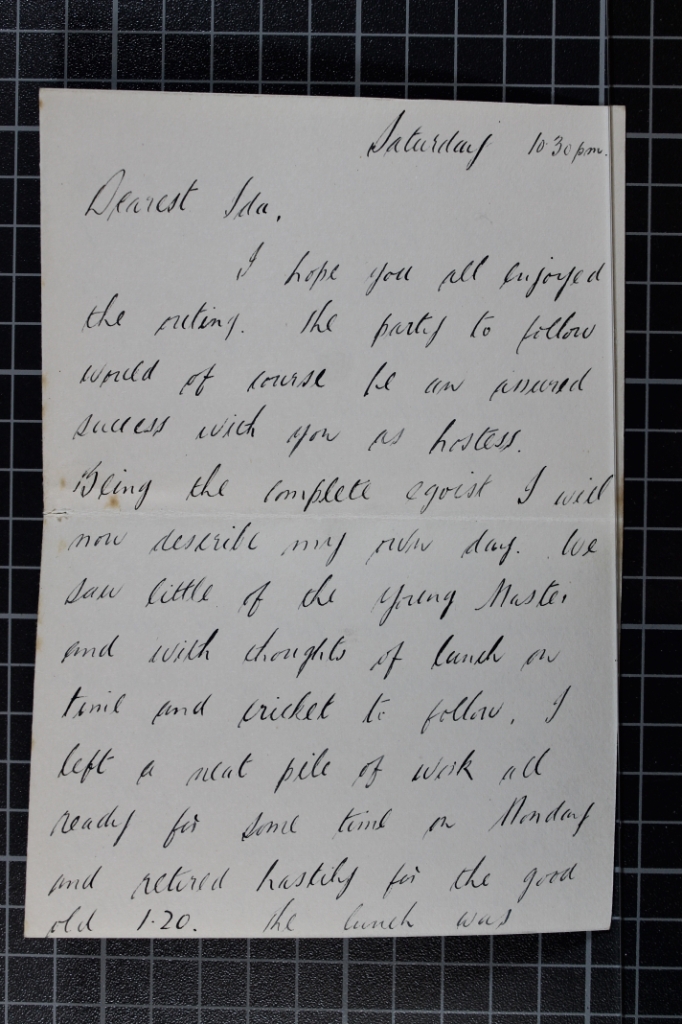 Saturday 10.30pm.
Dearest Ida,
I hope you all enjoyed
the outing. The party to follow
would of course be an assured
success with you as hostess.
Being the complete egoist I will
now describe my own day. We
saw little of the Young Master
and with thoughts of lunch on
time and cricket to follow, I
left a neat pile of work all
ready for some time on Monday
and retired hastily for the good
old 1.20. The lunch was